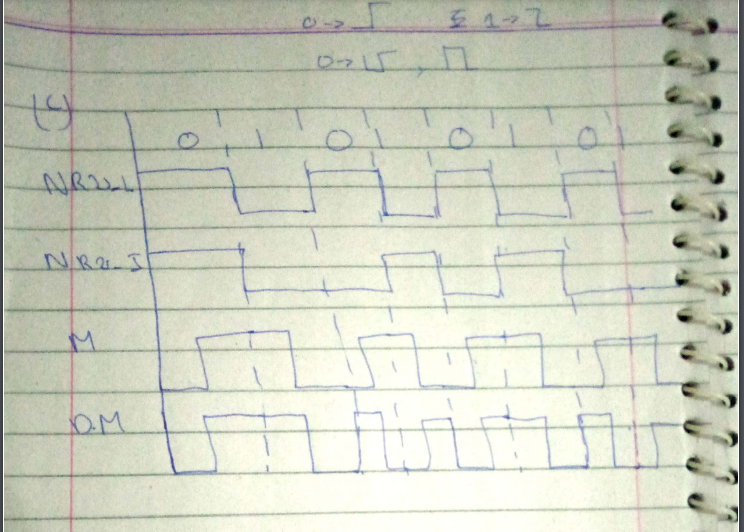 0→ 1→
0→ ,
(C)
0 1 0 1 0 1 0 1
NRZ-L
NRZ-I
M
D.M